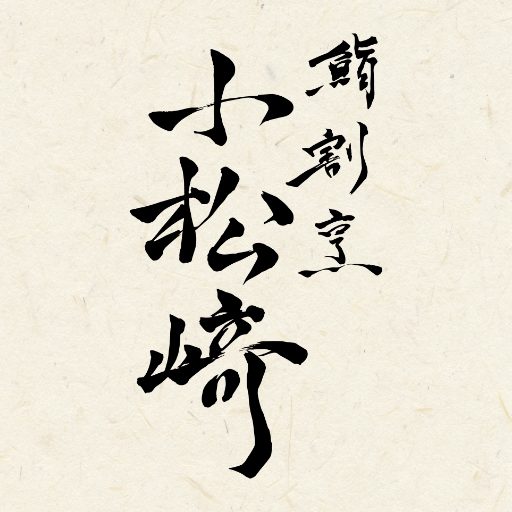 鮨割烹
小松﨑